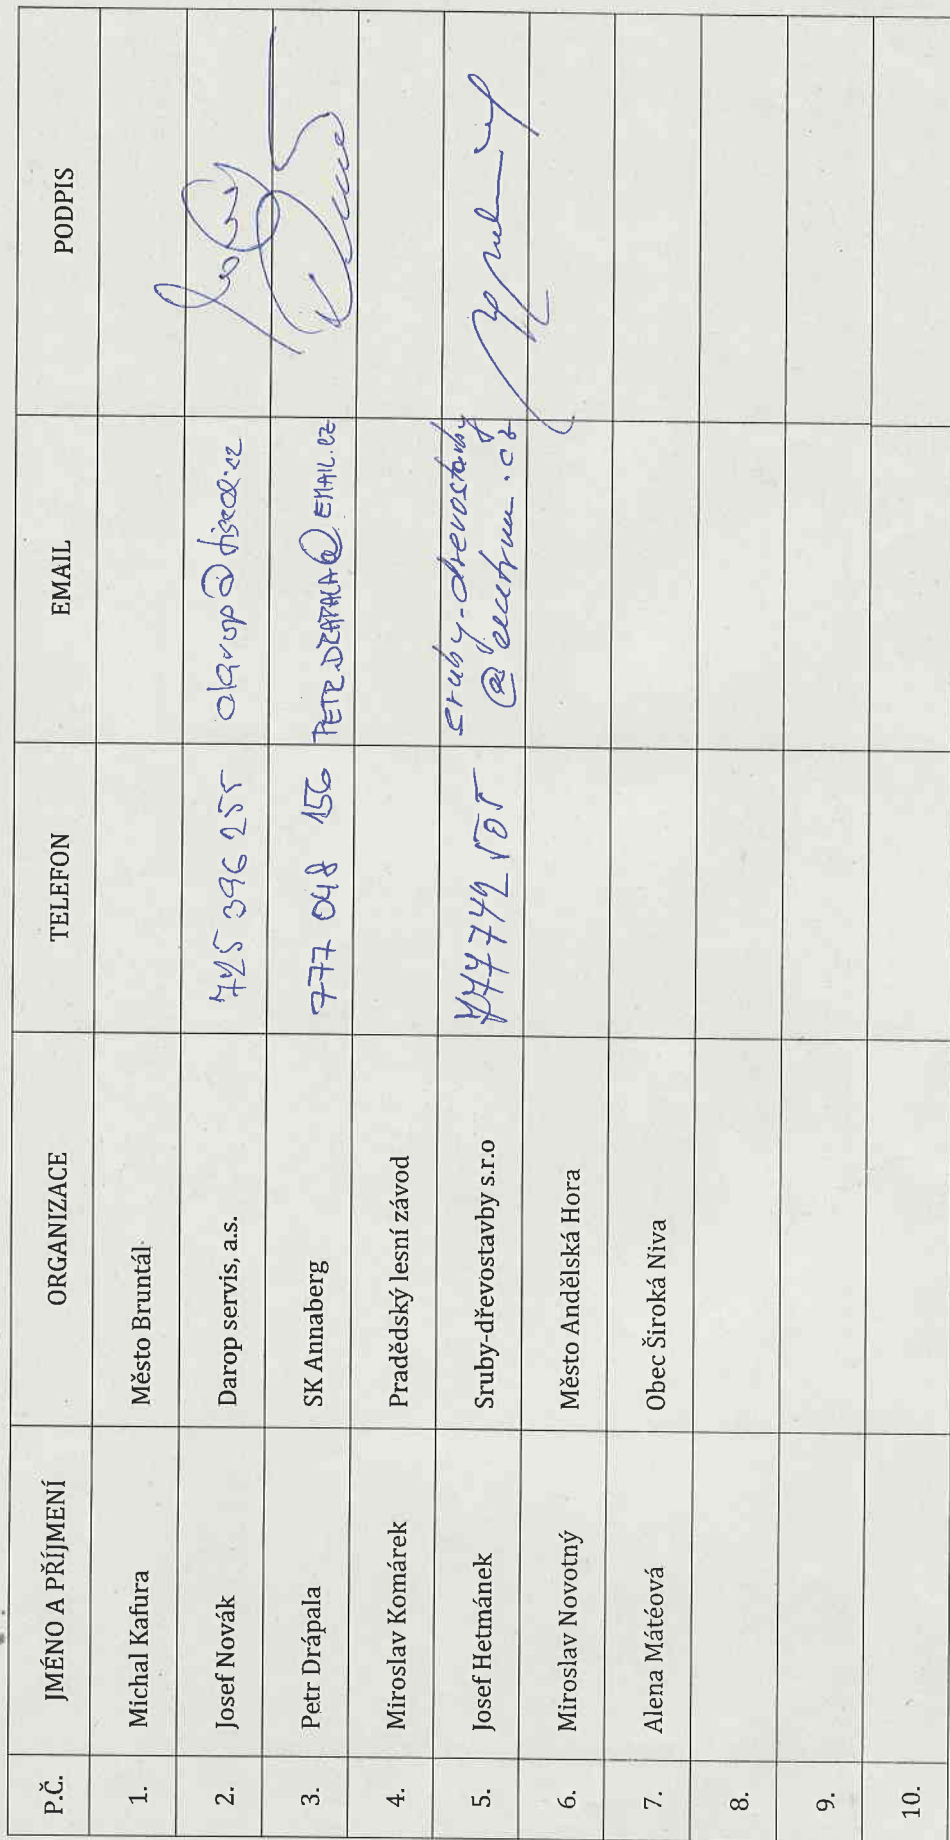 P.Č. JMÉNO A PŘÍJMENÍ ORGANIZACE TELEFON EMAIL PODPIS
1. Michal Kafura Město Bruntál
2. Josef Novák Darop servis, a.s. 725 396 255
3. Petr Drápala SK Annaberg 777 048 156 PETR.DRAPALA@EMAIL.CZ
4. Miroslav Komárek Pradědský lesní závod
5. Josef Hetmánek Sruby-dřevostavby s.r.o 777742505 sruby-drevostavby
@centrum.cz
6. Miroslav Novotný Město Andělská Hora
7. Alena Mátéová Obec Široká Niva
8.
9.
10.